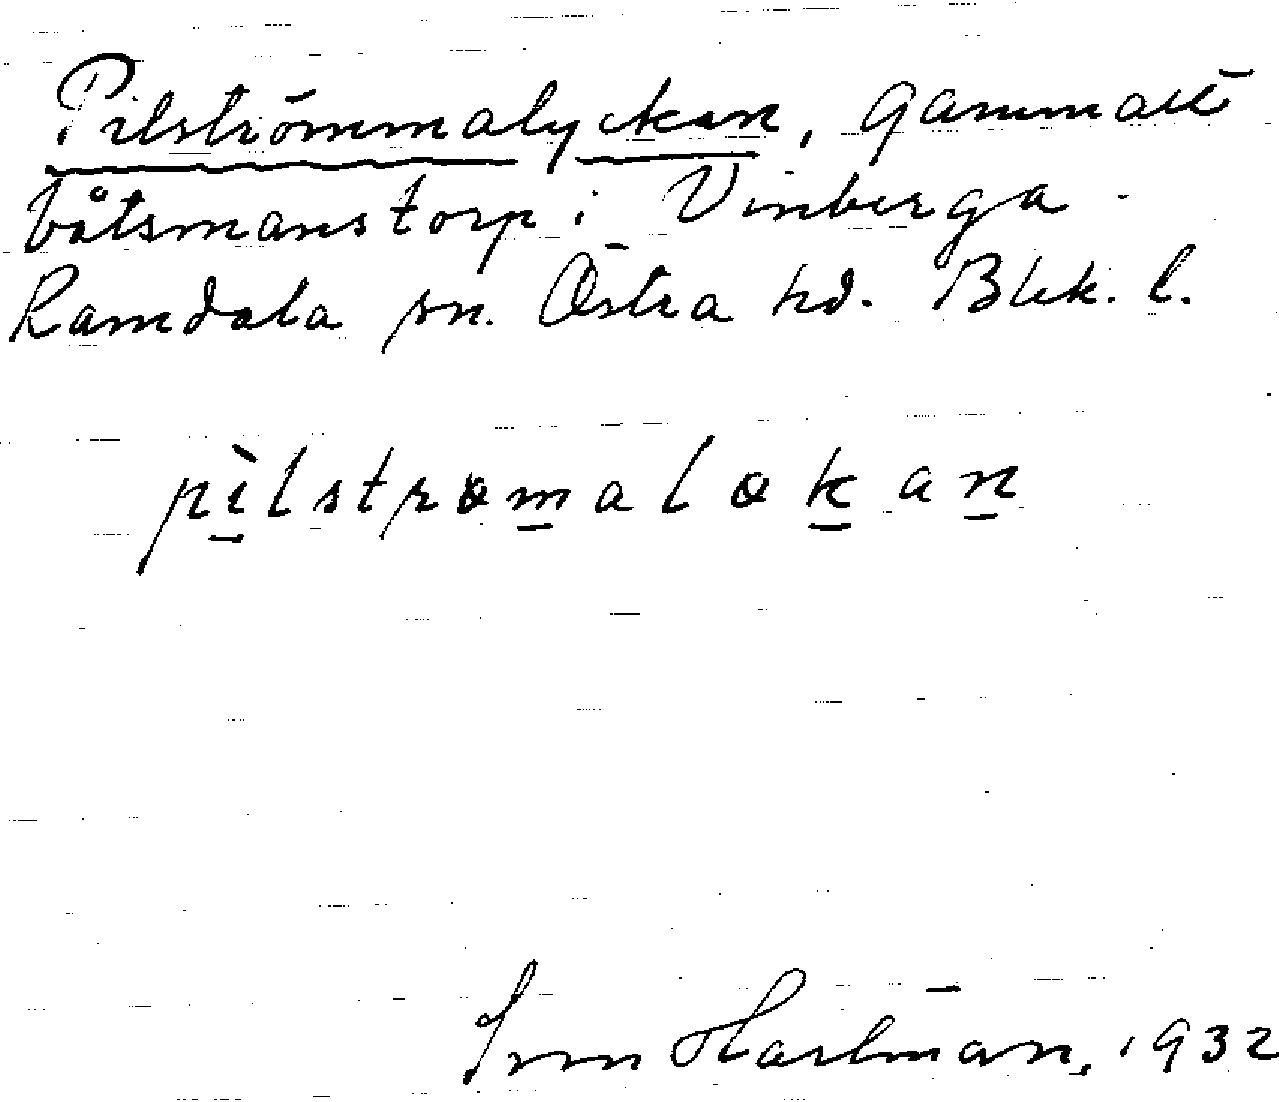 Pilströmmalyckan, gammalt
båtsmanstorp i Vinberga
Ramdala sn. Östra hd. Blek. l.
pìlstrømaløkan
Hartman, 1932